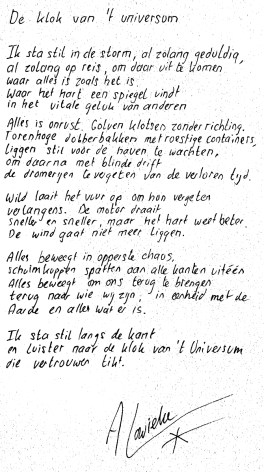 De klok van 't universum
Ik sta stil in de storm, al zolang geduldig,
al zolang op reis, om daar uit te komen
waar alles is zoals het is.
Waar het hart een spiegel vindt
in het vitale geluk van anderen
Alles is onrust. Golven klotsen zonder richting.
Torenhoge dobberbakken met roestige containers,
liggen stil voor de haven te wachten,
om daarna met blinde drift
de dromerijen te vergeten van de verloren tijd.
Wild laait het vuur op om hen vergeten
verlangens. De motor draait
sneller en sneller, maar het hart weet beter.
De wind gaat niet meer liggen.
Alles beweegt in opperste chaos,
schuimkoppen spatten aan alle kanten uitéén
Alles beweegt om ons terug te brengen
terug naar wie wij zijn, in eenheid met de
Aarde en alles wat er is.
Ik sta stil langs de kant
en luister naar de klok van 't Universum
die vertrouwen tikt.